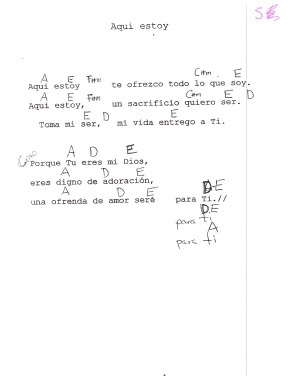 Aqui estoy
A E F#m C#m E
Aqui estoy te ofrezco todo lo que soy.
A E F#m C#m E D
Aqui estoy, un sacrificio quiero ser.
E D E
Toma mi ser, mi vida entrego a Ti.
A D E
Porque Tu eres mi Dios,
A D E
eres digno de adoración,
A D E D-E
una ofrenda de amor seré para Ti.//
D E
para ti
A
para ti